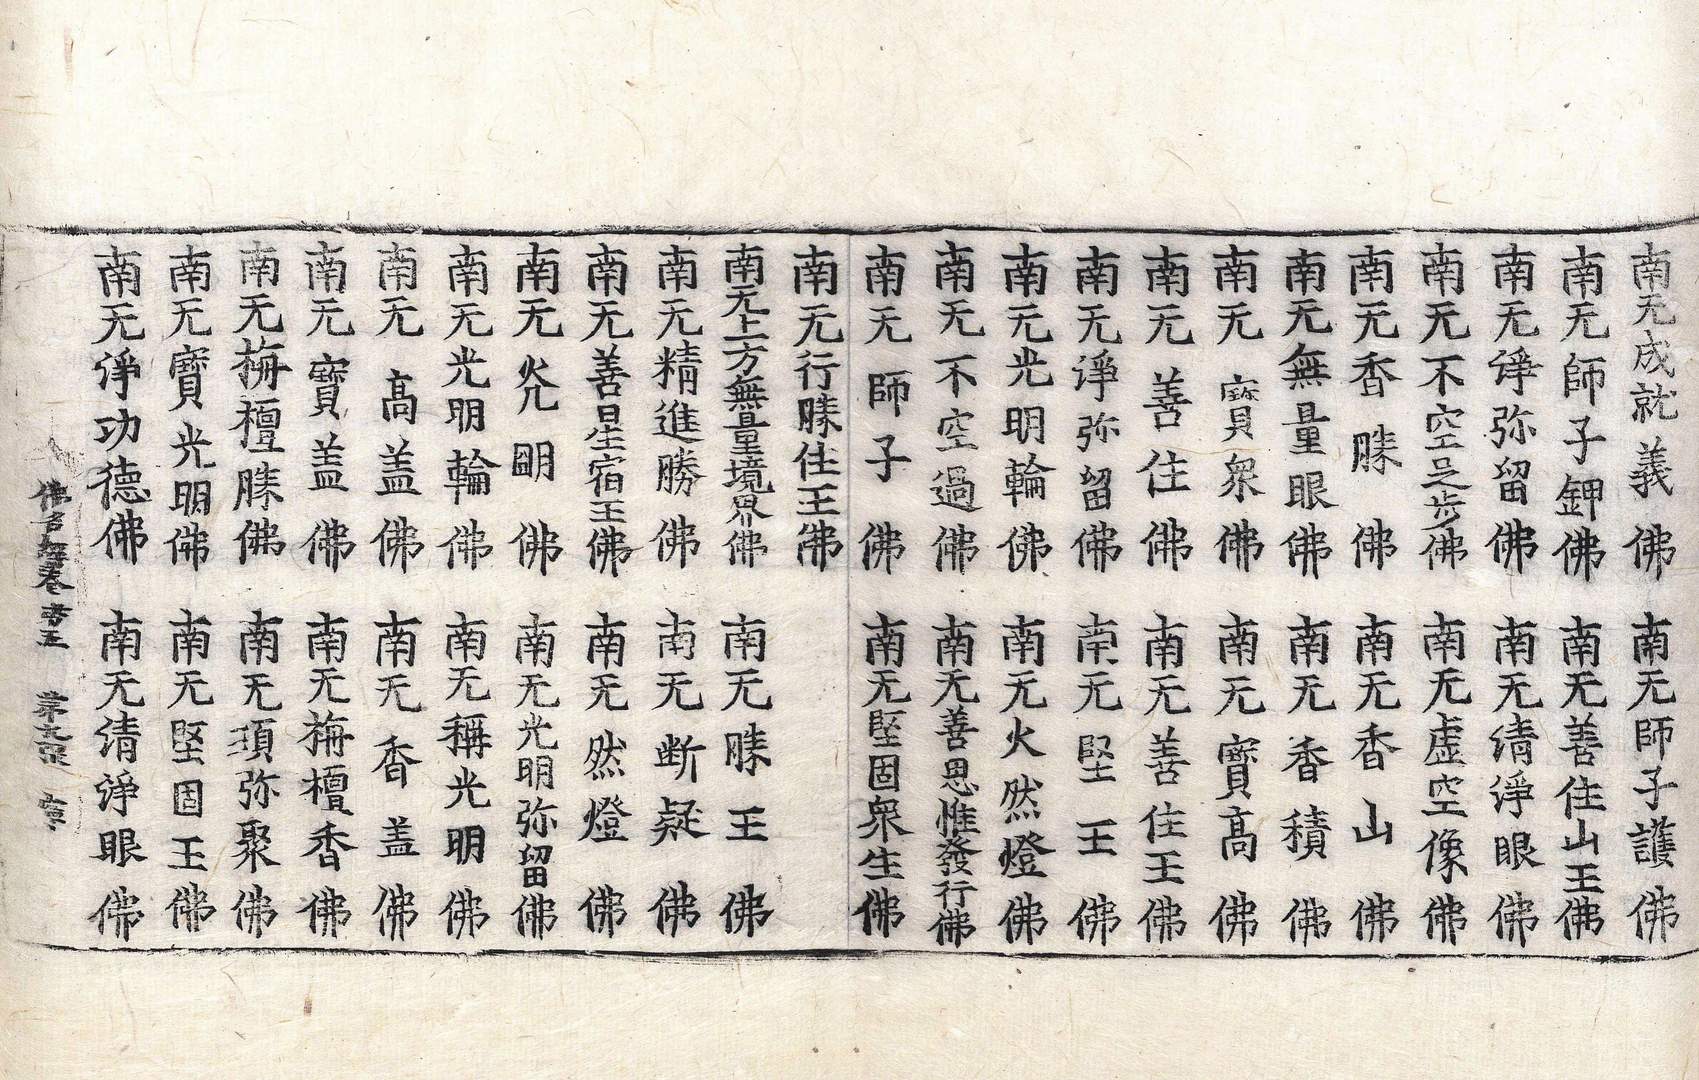 南无成就義佛　南无師子護佛
南无師子鉀佛　南无善住山王佛
南无淨弥留佛　南无清淨眼佛
南无不空足步佛　南无虛空像佛
南无香勝佛　南无香山佛
南无無量眼佛　南无香積佛
南无寶衆佛　南无寶髙佛
南无善住佛　南无善住王佛
南无淨弥留佛　南无堅王佛
南无光明輪佛　南无火然燈佛
南无不空過佛　南无善思惟發行佛
南无師子佛　南无堅固衆生佛
南无行勝住王佛
南无上方無量境界佛　南无勝王佛
南无精進勝佛　南无断疑佛
南无善星宿王佛　南无然燈佛
南无光明佛　南无光明弥留佛
南无光明輪佛　南无稱光明佛
南无髙盖佛　南无香盖佛
南无寶盖佛　南无栴檀香佛
南无栴檀勝佛　南无須弥聚佛
南无寶光明佛　南无堅固王佛
南无淨功德佛　南无清淨眼佛